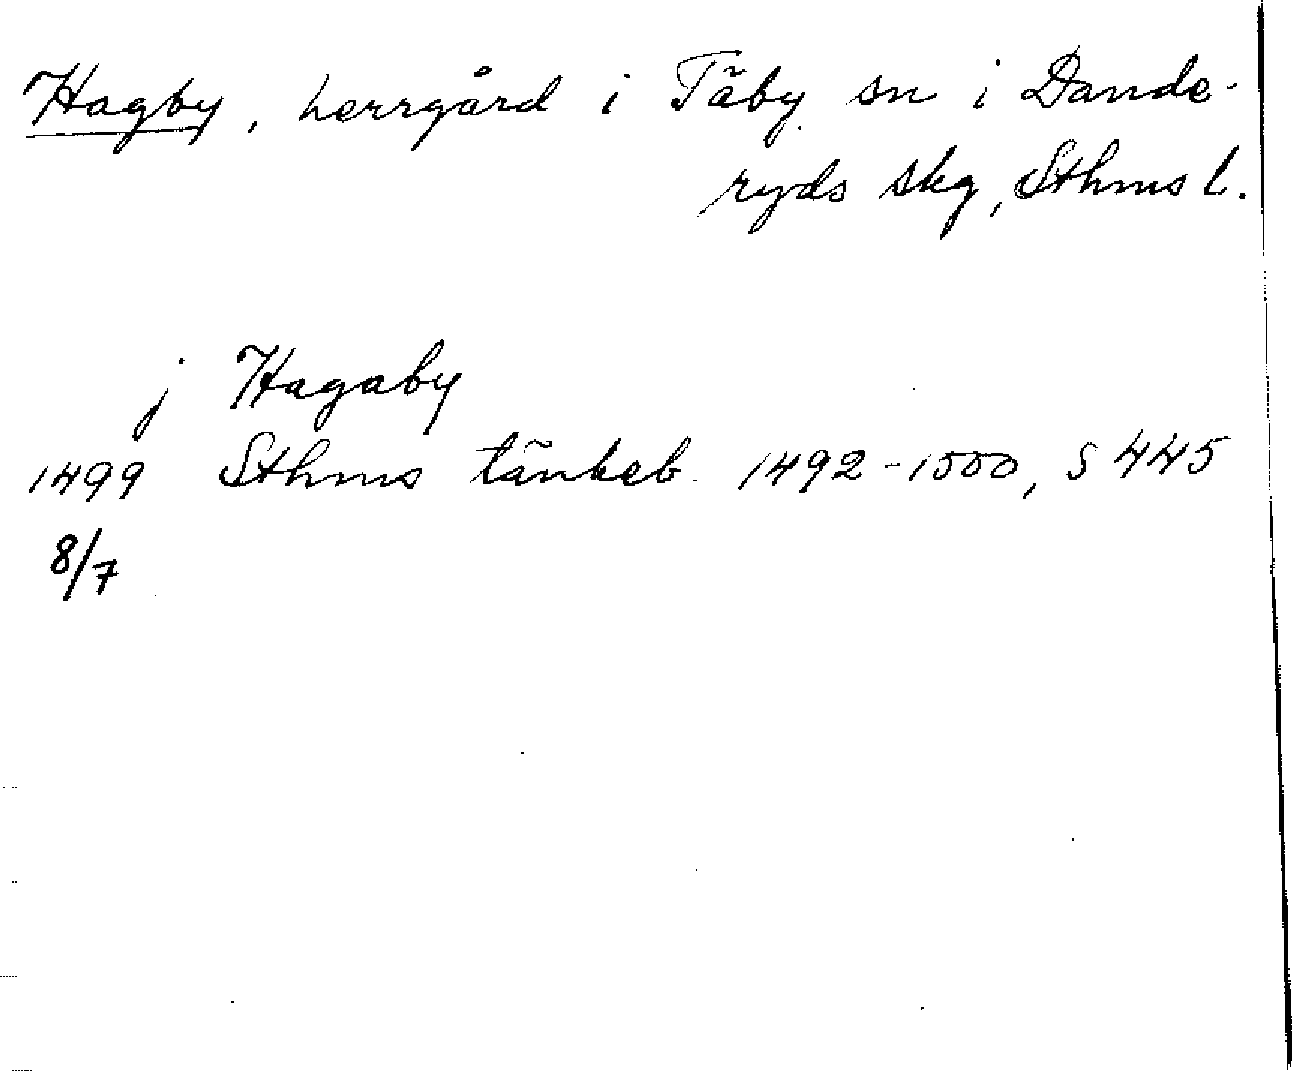 Hagby, herrgård i Täby sn i Dande-
ryds skg, Sthms l.
j Hagaby
1499 Sthms tänkeb. 1492-1500, s 445
8/7